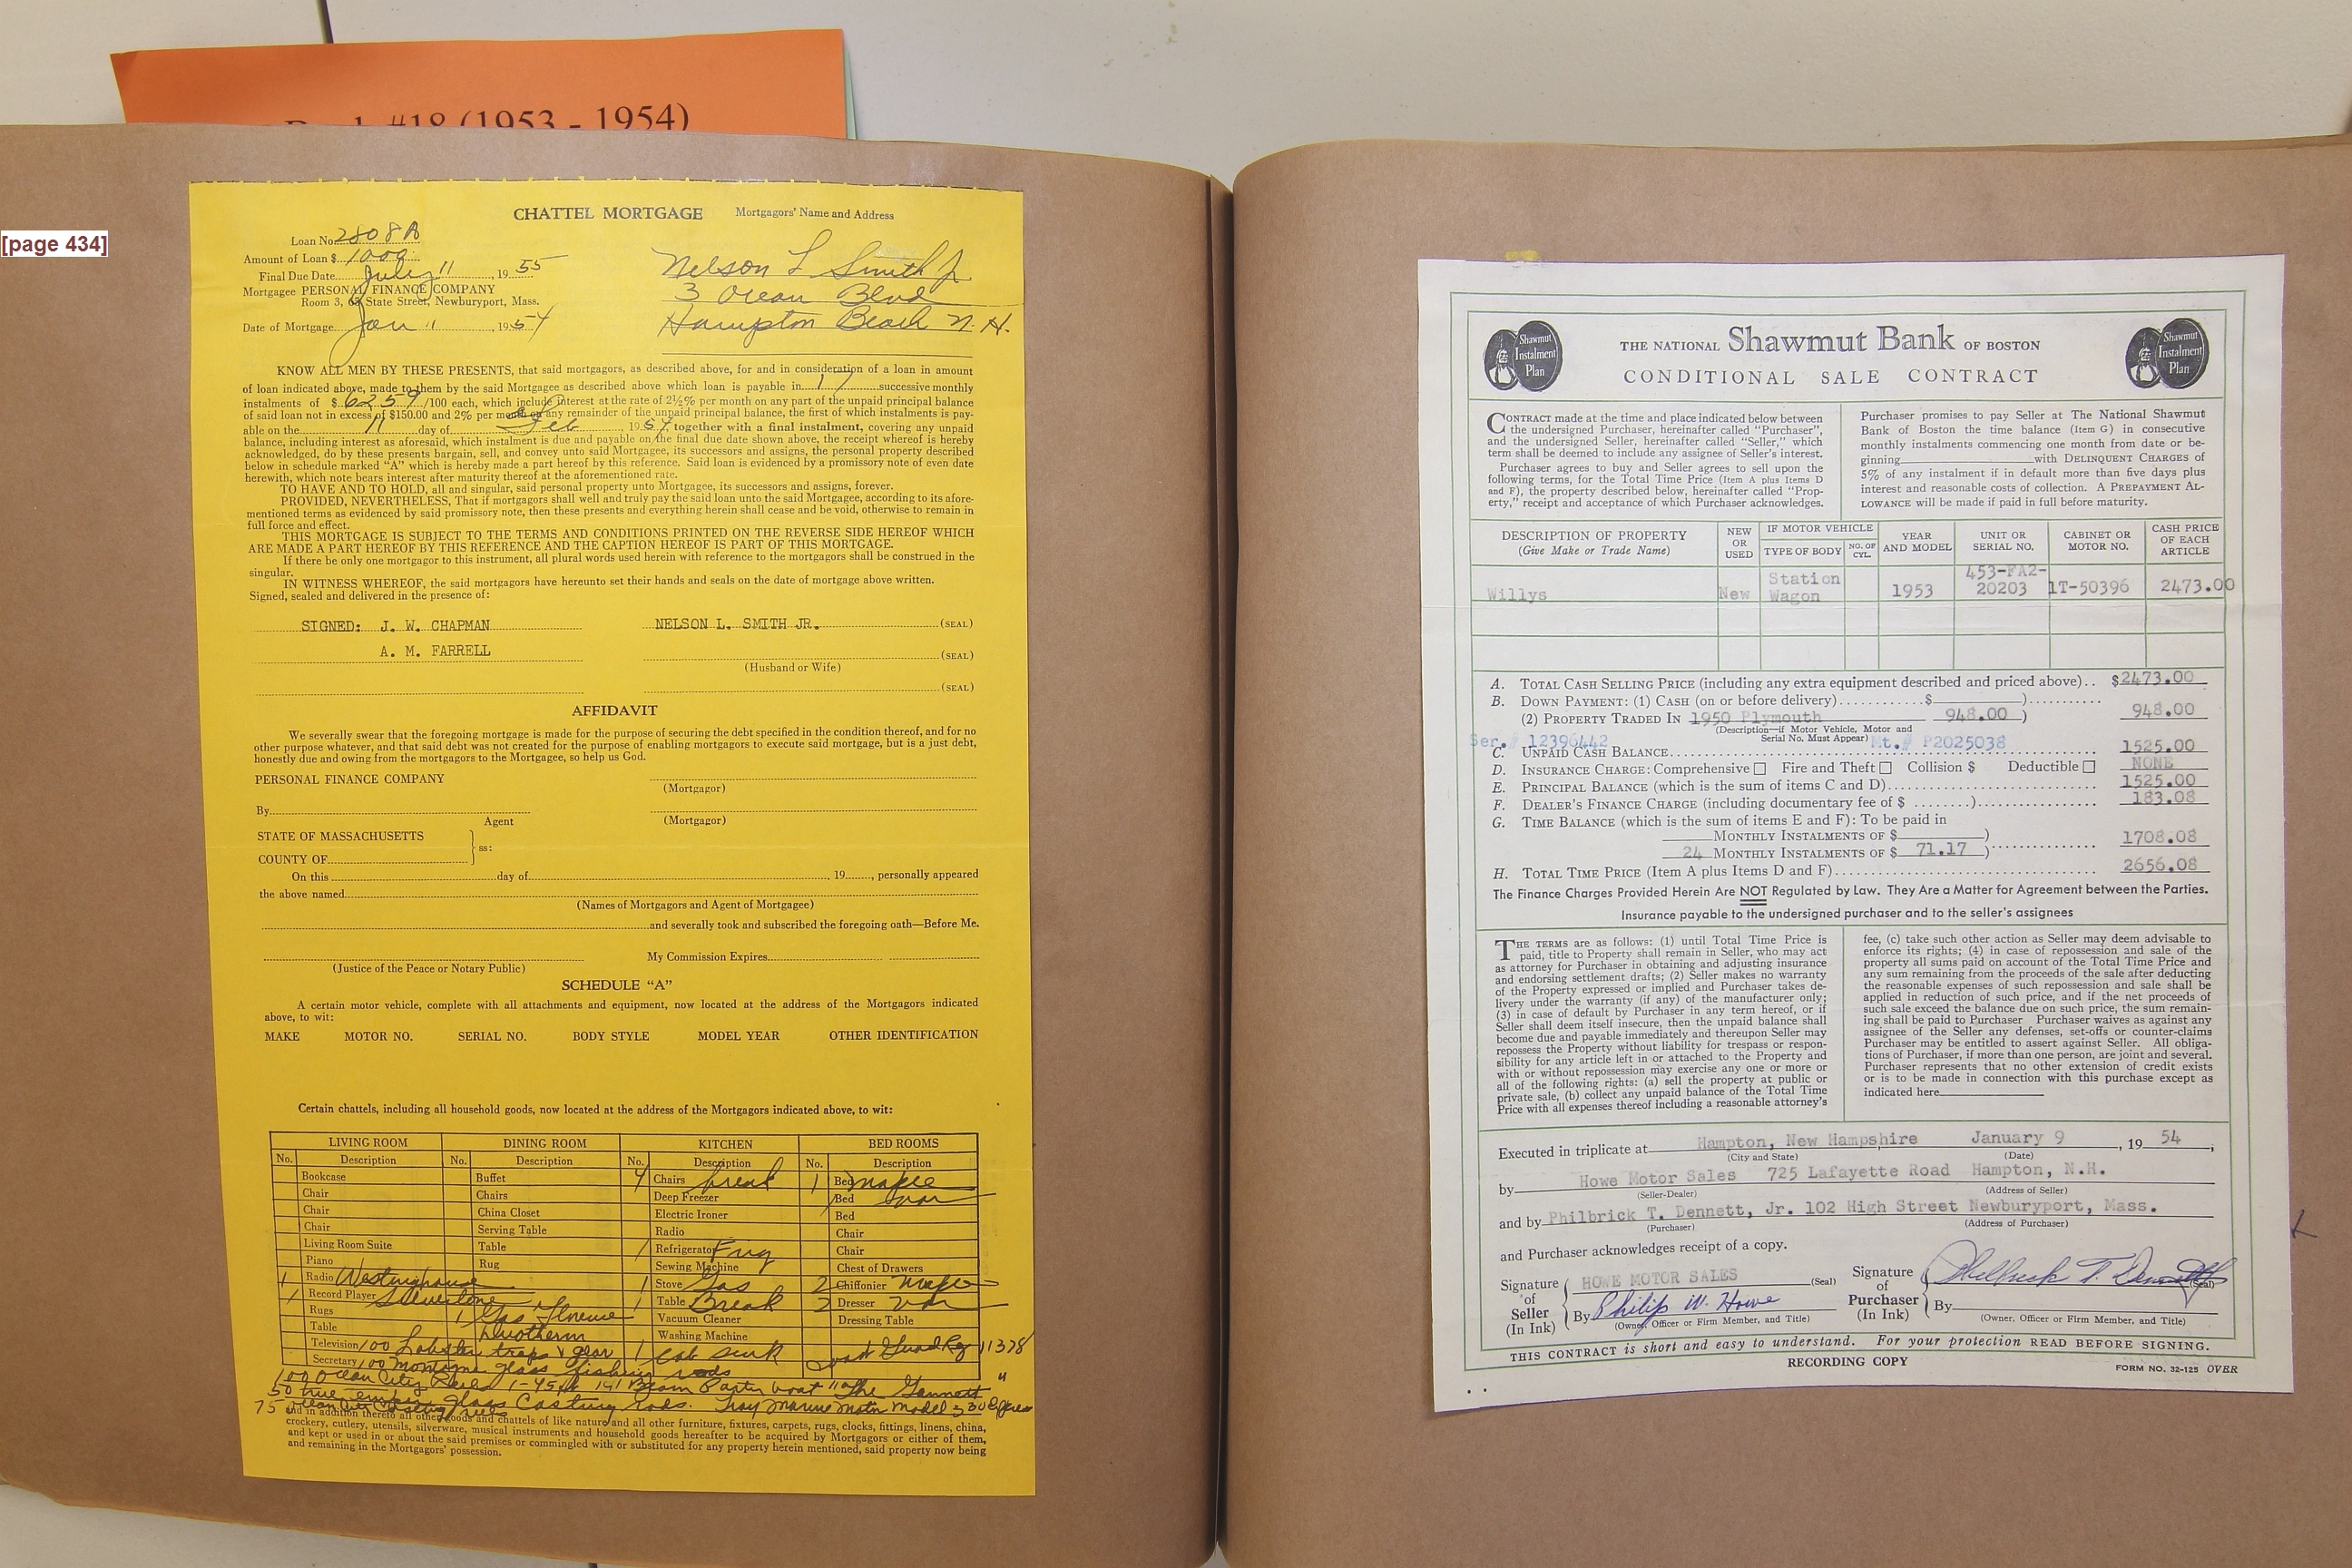 Book #18 (1953 - 1954)
[page 434]
CHATTEL MORTGAGE Mortgagors' Name and Address
Loan No. 2808A
Amount of Loan $ 1000
Final Due Date July 11, 1955
Mortgagee PERSONAL FINANCE COMPANY
Room 3, 63 State Street, Newburyport, Mass.
Date of Mortgage Jan 11, 1954
Nelson L Smith Jr
3 Ocean Blvd
Hampton Beach N. H.
KNOW ALL MEN BY THESE PRESENTS, that said mortgagors, as described above, for and in consideration of a loan in amount
of loan indicated above, made to them by the said Mortgagee as described above which loan is payable in 17 successive monthly
instalments of $ 62 59/100 each, which include interest at the rate of 2½% per month on any part of the unpaid principal balance
of said loan not in excess of $150.00 and 2% per month on any remainder of the unpaid principal balance, the first of which instalments is pay-
able on the 11 day of Feb, 1954 together with a final instalment, covering any unpaid
balance, including interest as aforesaid, which instalment is due and payable on the final due date shown above, the receipt whereof is hereby
acknowledged, do by these presents bargain, sell, and convey unto said Mortgagee, its successors and assigns, the personal property described
below in schedule marked "A" which is hereby made a part hereof by this reference. Said loan is evidenced by a promissory note of even date
herewith, which note bears interest after maturity thereof at the aforementioned rate.
TO HAVE AND TO HOLD, all and singular, said personal property unto Mortgagee, its successors and assigns, forever.
PROVIDED, NEVERTHELESS, That if mortgagors shall well and truly pay the said loan unto the said Mortgagee, according to its afore-
mentioned terms as evidenced by said promissory note, then these presents and everything herein shall cease and be void, otherwise to remain in
full force and effect.
THIS MORTGAGE IS SUBJECT TO THE TERMS AND CONDITIONS PRINTED ON THE REVERSE SIDE HEREOF WHICH
ARE MADE A PART HEREOF BY THIS REFERENCE AND THE CAPTION HEREOF IS PART OF THIS MORTGAGE.
If there be only one mortgagor to this instrument, all plural words used herein with reference to the mortgagors shall be construed in the
singular.
IN WITNESS WHEREOF, the said mortgagors have hereunto set their hands and seals on the date of mortgage above written.
Signed, sealed and delivered in the presence of:
SIGNED: J. W. CHAPMAN NELSON L. SMITH JR. (SEAL)
A. M. FARRELL (SEAL)
(Husband or Wife)
(SEAL)
AFFIDAVIT
We severally swear that the foregoing mortgage is made for the purpose of securing the debt specified in the condition thereof, and for no
other purpose whatever, and that said debt was not created for the purpose of enabling mortgagors to execute said mortgage, but is a just debt,
honestly due and owing from the mortgagors to the Mortgagee, so help us God.
PERSONAL FINANCE COMPANY
(Mortgagor)
By
Agent (Mortgagor)
STATE OF MASSACHUSETTS
ss:
COUNTY OF
On this day of, 19, personally appeared
the above named
(Names of Mortgagors and Agent of Mortgagee)
and severally took and subscribed the foregoing oath—Before Me.
My Commission Expires
(Justice of the Peace or Notary Public)
SCHEDULE "A"
A certain motor vehicle, complete with all attachments and equipment, now located at the address of the Mortgagors indicated
above, to wit:
MAKE MOTOR NO. SERIAL NO. BODY STYLE MODEL YEAR OTHER IDENTIFICATION
Certain chattels, including all household goods, now located at the address of the Mortgagors indicated above, to wit:
LIVING ROOM DINING ROOM KITCHEN BED ROOMS
No. Description No. Description No. Description No. Description
Bookcase Buffet 4 Chairs break 1 Bed maple
Chair Chairs Deep Freezer 1 Bed
Chair China Closet Electric Ironer Bed
Chair Serving Table Radio Chair
Living Room Suite Table 1 Refrigerator Frig Chair
Piano Rug Sewing Machine Chest of Drawers
1 Radio Westinghouse 1 Stove Gas 2 Chiffonier maple
1 Record Player Silvertone 1 Table Break 2 Dresser
Rugs 1 Gas Florence Vacuum Cleaner Dressing Table
Table Duotherm Washing Machine
Television 100 Lobster traps & gear 1 cab sink Guard Reg 11378
Secretary 100 Montague glass fishing rods
100 Ocean City Reels 1-45ft Beam boat "The Gannett"
50 true temper glass Casting rods. Gray Marine Motor Model 330
75 Ocean City Casting reels
and in addition thereto all other goods and chattels of like nature and all other furniture, fixtures, carpets, rugs, clocks, fittings, linens, china,
crockery, cutlery, utensils, silverware, musical instruments and household goods hereafter to be acquired by Mortgagors or either of them,
and kept or used in or about the said premises or commingled with or substituted for any property herein mentioned, said property now being
and remaining in the Mortgagors' possession.
Shawmut Instalment Plan
THE NATIONAL Shawmut Bank OF BOSTON
CONDITIONAL SALE CONTRACT
Shawmut Instalment Plan
CONTRACT made at the time and place indicated below between
the undersigned Purchaser, hereinafter called "Purchaser",
and the undersigned Seller, hereinafter called "Seller," which
term shall be deemed to include any assignee of Seller's interest.
Purchaser agrees to buy and Seller agrees to sell upon the
following terms, for the Total Time Price (Item A plus Items D
and F), the property described below, hereinafter called "Prop-
erty," receipt and acceptance of which Purchaser acknowledges.
Purchaser promises to pay Seller at The National Shawmut
Bank of Boston the time balance (Item G) in consecutive
monthly instalments commencing one month from date or be-
ginning with DELINQUENT CHARGES of
5% of any instalment if in default more than five days plus
interest and reasonable costs of collection. A PREPAYMENT AL-
LOWANCE will be made if paid in full before maturity.
DESCRIPTION OF PROPERTY (Give Make or Trade Name) NEW OR USED IF MOTOR VEHICLE TYPE OF BODY NO. OF CYL. YEAR AND MODEL UNIT OR SERIAL NO. CABINET OR MOTOR NO. CASH PRICE OF EACH ARTICLE
Willys New Station Wagon 1953 453-FA2-20203 1T-50396 2473.00
A. TOTAL CASH SELLING PRICE (including any extra equipment described and priced above).. $2473.00
B. DOWN PAYMENT: (1) Cash (on or before delivery)...........$ )..........
(2) PROPERTY TRADED IN 1950 Plymouth 948.00 ) 948.00
(Description—if Motor Vehicle, Motor and
Serial No. Must Appear)
Ser.# 12396442 Mt.# P2025038
C. UNPAID CASH BALANCE 1525.00
D. INSURANCE CHARGE: Comprehensive □ Fire and Theft □ Collision $ Deductible □ NONE
E. PRINCIPAL BALANCE (which is the sum of items C and D) 1525.00
F. DEALER'S FINANCE CHARGE (including documentary fee of $ ........) 183.08
G. TIME BALANCE (which is the sum of items E and F): To be paid in
MONTHLY INSTALMENTS OF $ )
24 MONTHLY INSTALMENTS OF $ 71.17 ) 1708.08
H. TOTAL TIME PRICE (Item A plus Items D and F) 2656.08
The Finance Charges Provided Herein Are NOT Regulated by Law. They Are a Matter for Agreement between the Parties.
Insurance payable to the undersigned purchaser and to the seller's assignees
THE TERMS are as follows: (1) until Total Time Price is
paid, title to Property shall remain in Seller, who may act
as attorney for Purchaser in obtaining and adjusting insurance
and endorsing settlement drafts; (2) Seller makes no warranty
of the Property expressed or implied and Purchaser takes de-
livery under the warranty (if any) of the manufacturer only;
(3) in case of default by Purchaser in any term hereof, or if
Seller shall deem itself insecure, then the unpaid balance shall
become due and payable immediately and thereupon Seller may
repossess the Property without liability for trespass or respon-
sibility for any article left in or attached to the Property and
with or without repossession may exercise any one or more or
all of the following rights: (a) sell the property at public or
private sale, (b) collect any unpaid balance of the Total Time
Price with all expenses thereof including a reasonable attorney's
fee, (c) take such other action as Seller may deem advisable to
enforce its rights; (4) in case of repossession and sale of the
property all sums paid on account of the Total Time Price and
any sum remaining from the proceeds of the sale after deducting
the reasonable expenses of such repossession and sale shall be
applied in reduction of such price, and if the net proceeds of
such sale exceed the balance due on such price, the sum remain-
ing shall be paid to Purchaser Purchaser waives as against any
assignee of the Seller any defenses, set-offs or counter-claims
Purchaser may be entitled to assert against Seller. All obliga-
tions of Purchaser, if more than one person, are joint and several.
Purchaser represents that no other extension of credit exists
or is to be made in connection with this purchase except as
indicated here
Executed in triplicate at Hampton, New Hampshire January 9, 19 54,
(City and State) (Date)
by Howe Motor Sales 725 Lafayette Road Hampton, N.H.
(Seller-Dealer) (Address of Seller)
and by Philbrick T. Dennett, Jr. 102 High Street Newburyport, Mass.
(Purchaser) (Address of Purchaser)
and Purchaser acknowledges receipt of a copy.
Signature of Seller (In Ink) HOWE MOTOR SALES (Seal)
By Philip W. Howe
(Owner, Officer or Firm Member, and Title)
Signature of Purchaser (In Ink) Philbrick T. Dennett Jr (Seal)
By
(Owner, Officer or Firm Member, and Title)
THIS CONTRACT is short and easy to understand. For your protection READ BEFORE SIGNING.
RECORDING COPY
FORM NO. 32-125 OVER